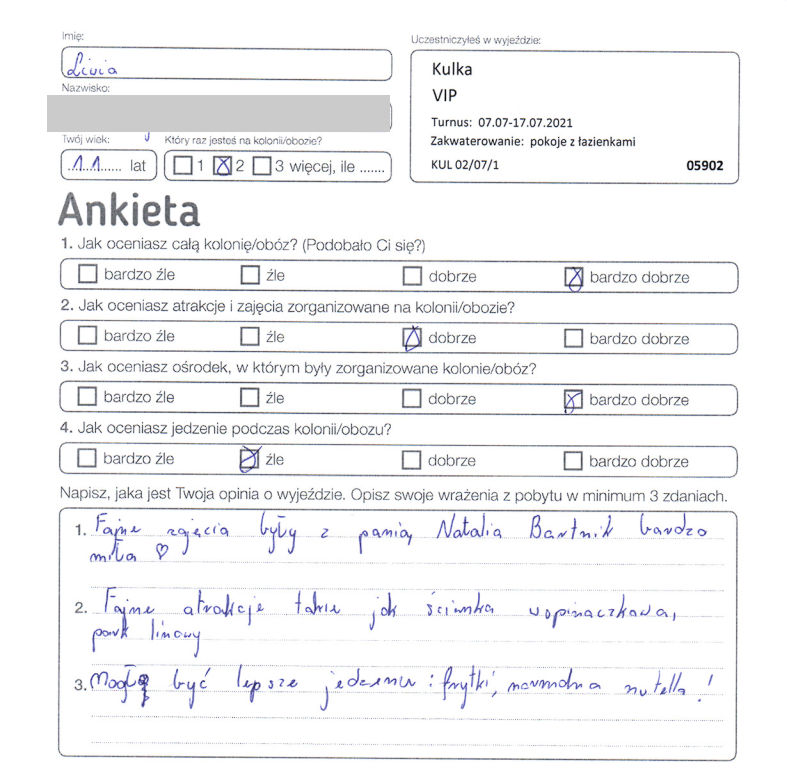 Imię:
Livia
Nazwisko:
Twój wiek:
11 lat
Który raz jesteś na kolonii/obozie?
1 2 3 więcej, ile .......
Uczestniczyłeś w wyjeździe:
Kulka
VIP
Turnus: 07.07-17.07.2021
Zakwaterowanie: pokoje z łazienkami
KUL 02/07/1 05902
Ankieta
1. Jak oceniasz całą kolonię/obóz? (Podobało Ci się?)
bardzo źle źle dobrze bardzo dobrze
2. Jak oceniasz atrakcje i zajęcia zorganizowane na kolonii/obozie?
bardzo źle źle dobrze bardzo dobrze
3. Jak oceniasz ośrodek, w którym były zorganizowane kolonie/obóz?
bardzo źle źle dobrze bardzo dobrze
4. Jak oceniasz jedzenie podczas kolonii/obozu?
bardzo źle źle dobrze bardzo dobrze
Napisz, jaka jest Twoja opinia o wyjeździe. Opisz swoje wrażenia z pobytu w minimum 3 zdaniach.
1. Fajne zajęcia były z panią Natalia Bartnik bardzo
miła ♡
2. Fajne atrakcje takie jak ścianka wspinaczkowa,
park linowy
3. być lepsze jedzenie: frytki, normalna nutella!